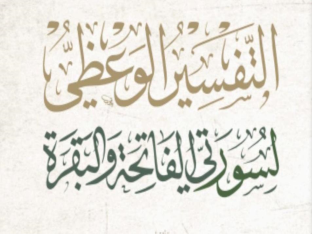 التَّفْسِيرُ الوَعْظِيُّ
لِسُورَتَيِ الفَاتِحَةِ وَالبَقَرَةِ